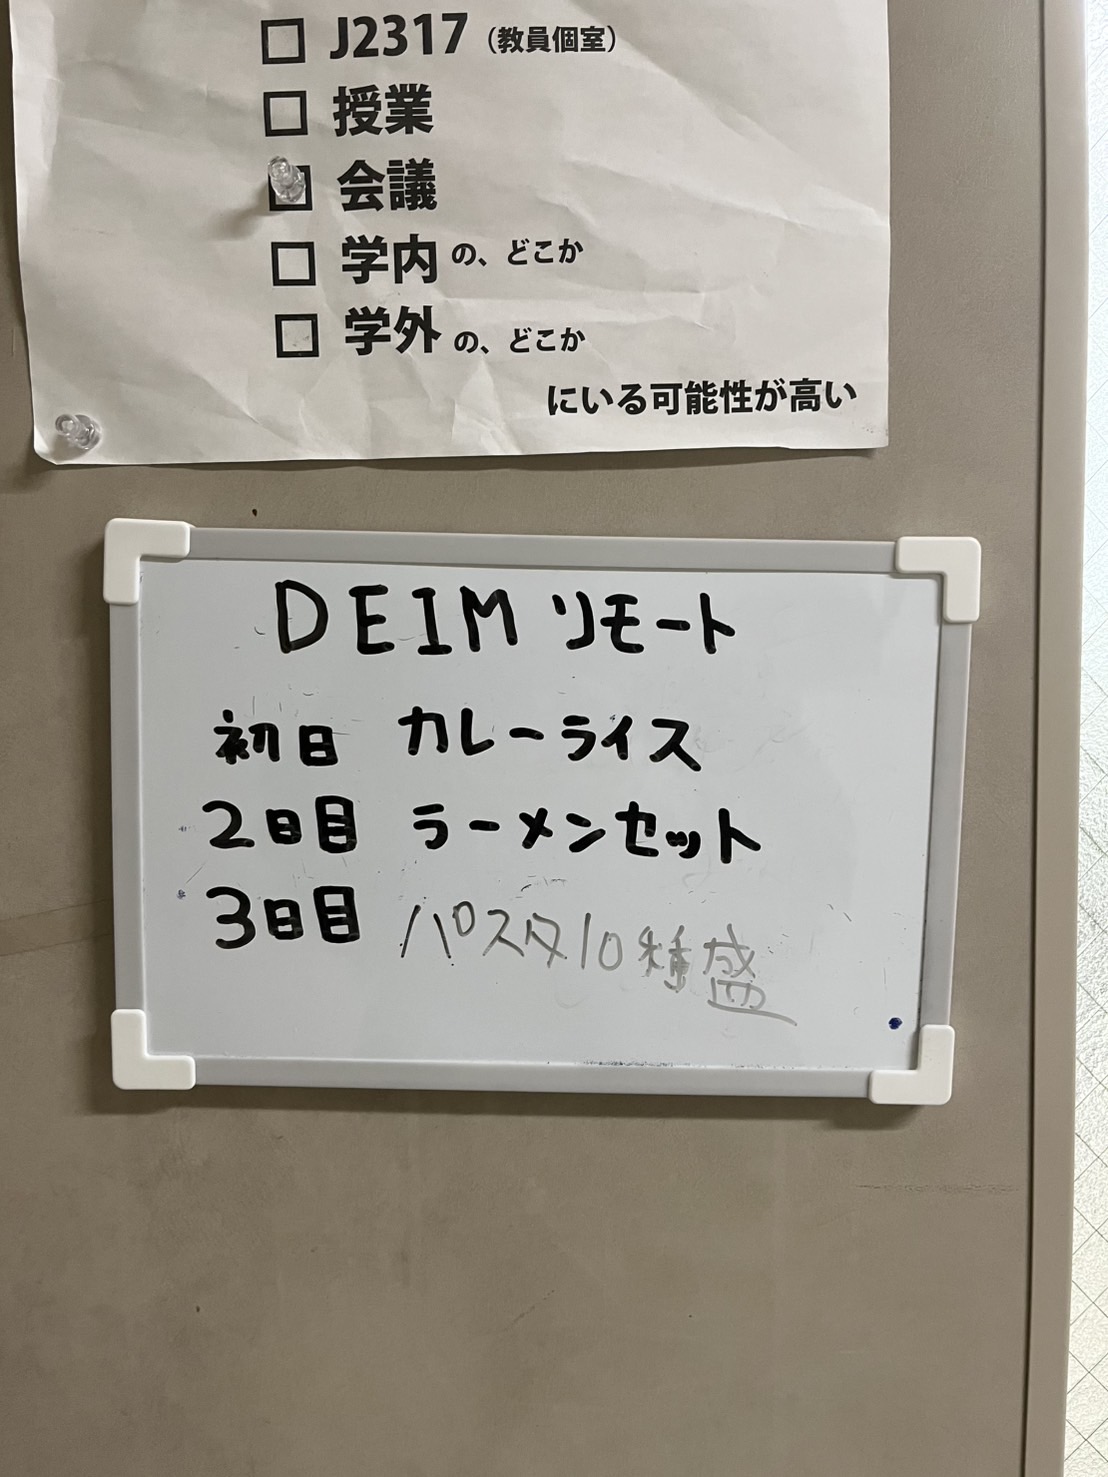 J2317（教員個室）
授業
会議
学内の、どこか
学外の、どこか
にいる可能性が高い
DEIM リモート
初日 カレーライス
2日目 ラーメンセット
3日目 パスタ10種盛